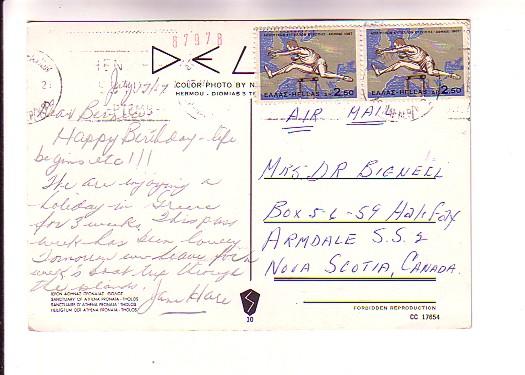 87978
DEL
COLOR PHOTO BY N.
HERMOU - DIOMIAS 3
ΕΛΛΑΣ-HELLAS 2.50
ΕΛΛΑΣ-HELLAS 2.50
AIR MAIL
July
Dear
Happy Birthday - life
begins etc !!!
We are enjoying a
holiday in Greece
for 3 weeks. This past
week has been lovely.
Tomorrow we leave for a
week's boat trip through
the islands.
Jane Hare
MRS. DR BIGNELL
BOX 56-59 Halifax
ARMDALE S.S. 2
NOVA SCOTIA, CANADA.
ΙΕΡΟΝ ΑΘΗΝΑΣ ΠΡΟΝΑΙΑΣ - ΘΟΛΟΣ
SANCTUARY OF ATHENA PRONAIA - THOLOS
SANCTUAIRE D'ATHENA PRONAIA - THOLOS
HEILIGTUM DER ATHENA PRONAIA - THOLOS
10
FORBIDDEN REPRODUCTION
CC 17654